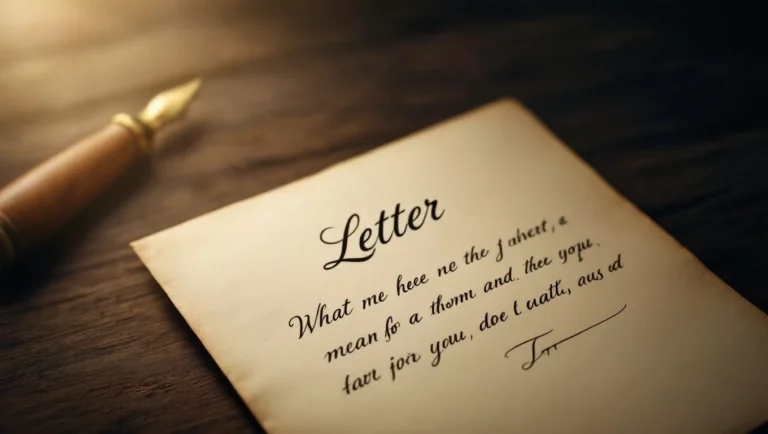 Letter
What me heee ne the j ahert, a
mean fo a thom and. thee yope,
far join you, doe t uatt, aus d